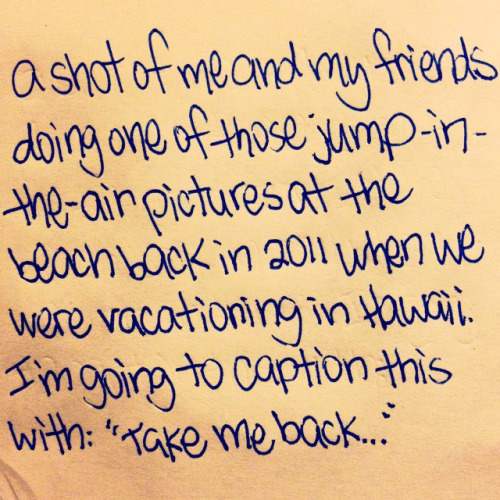 a shot of me and my friends
doing one of those jump-in-
the-air pictures at the
beach back in 2011 when we
were vacationing in Hawaii.
I'm going to caption this
with: "Take me back..."